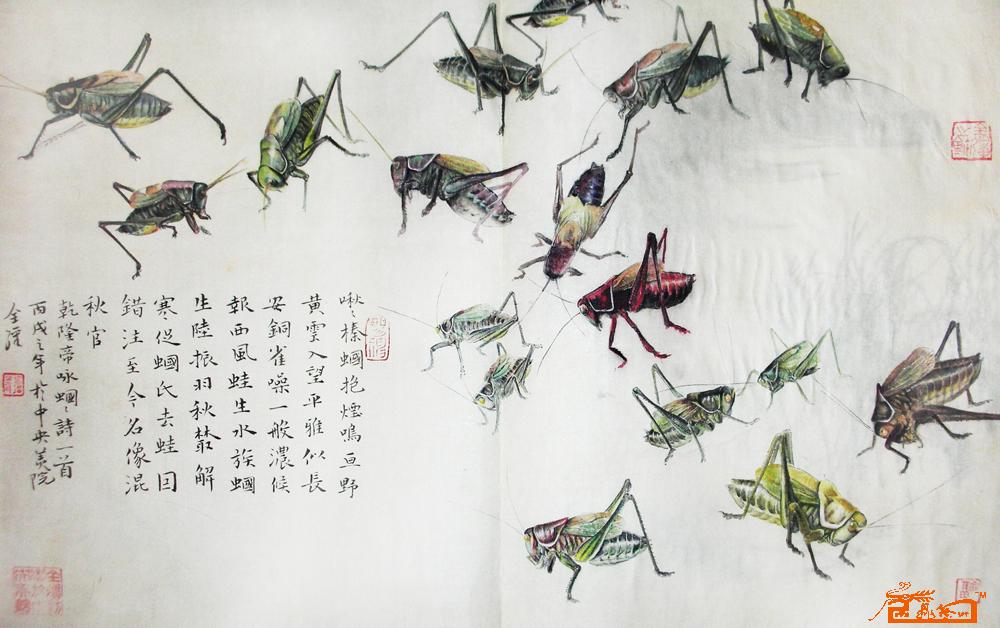 啾〻榛蟈抱煙鳴亘野
黃雲入望平雅似長
安銅雀噪一般濃候
報西風蛙生水族蟈
生陸振羽秋叢解
寒促蟈氏去蛙因
錯注至今名像混
秋官
乾隆帝咏蟈〻詩一首
丙戌之年於中央美院